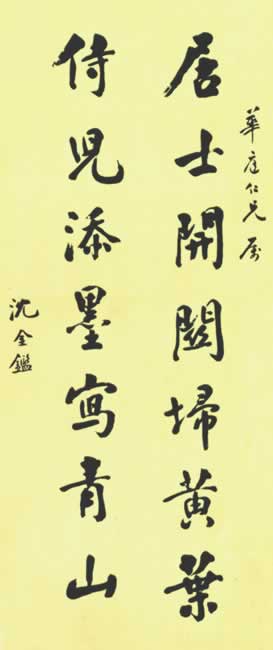 華庭仁兄屬
居士開閣埽黃葉
侍兒添墨寫青山
沈金鑑